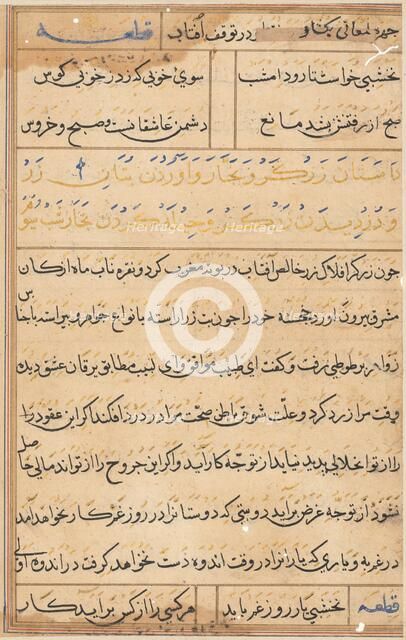 چهره معانی یکتا و در توقف آفتاب قطعه
نخشبی خواست تا رود امشب سوی خوبی که زد ز خوبی کوس
صبح از رفتنش بند مانع دشمن عاشقانست صبح و خروس
داستان زرگر و نجار و آوردن بتان زر
و دزدیدن زرگر و کردن نجار شب سوم
چون زرگر افلاک زر خالص آفتاب در بوته مغرب کرد و نقره ناب ماه از کان
مشرق بیرون آورد خجسته خود را چون بت زر آراسته بانواع جواهر و پیراسته باجناس
زواهر بر طوطی رفت و گفت ای طبیب موافق و ای لبیب مطابق یرقان عشق دیده
وقت مرا زرد کرد و علت شوق باطن صحت مرا در درد افکند اگر این عقود را
از تو انحلالی پدید نیاید از تو چه کار آید و اگر این جروح را از تو اندمالی حاصل
نشود از تو چه غرض برآید دوستی که دوستانرا در روز غم کار نخواهد آمد
در غم به و یاری که یارانرا در وقت اندوه دست نخواهد گرفت در اندوه اولی
قطعه نخشبی یار روز غم باید هر کسی را از کس برآید کار
Heritage Heritage